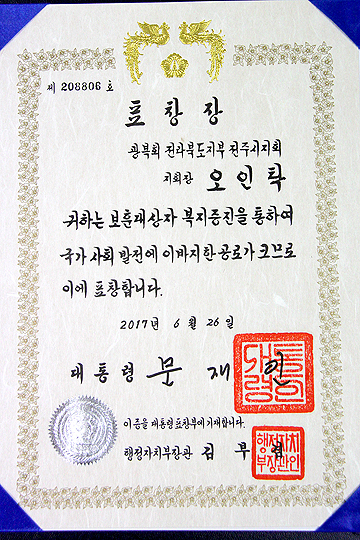 제 208806 호
표 창 장
광복회 전라북도지부 전주시지회
지회장 오인탁
귀하는 보훈대상자 복지증진을 통하여
국가 사회 발전에 이바지한 공로가 크므로
이에 표창합니다.
2017년 6월 26일
대통령 문 재 인
대통령인
이 증을 대통령표창부에 기재합니다.
행정자치부장관 김 부 겸
행정자치부장관인